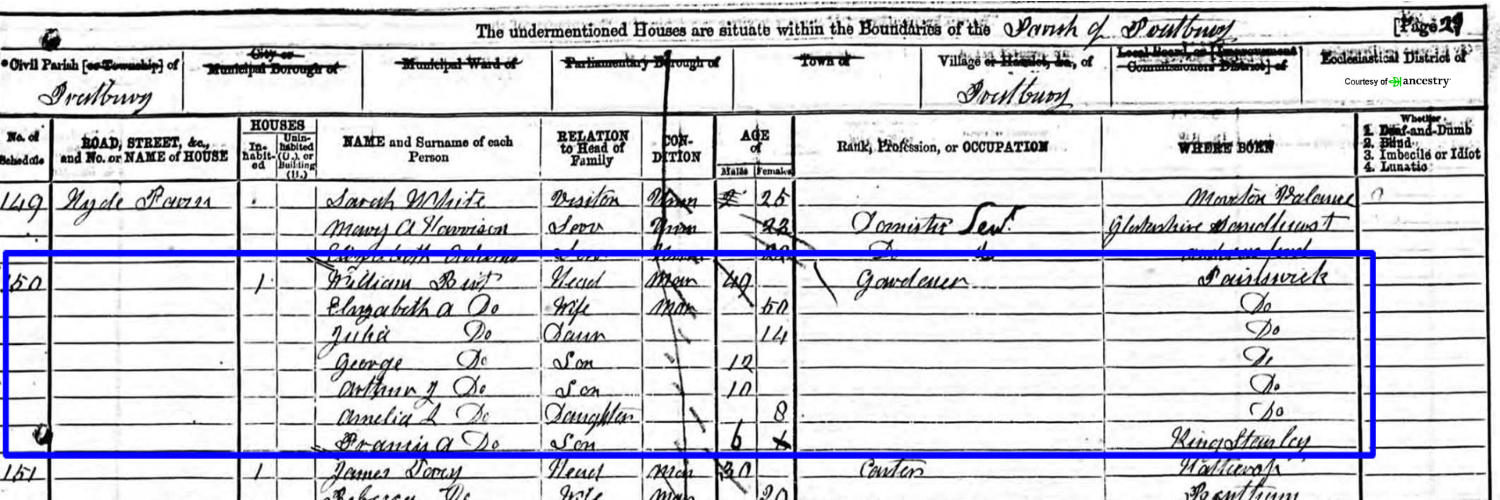 The undermentioned Houses are situate within the Boundaries of the Parish of [Page 29
Civil Parish [or Township] of
City or Municipal Borough of
Municipal Ward of
Parliamentary Borough of
Town of
Village or Hamlet, &c., of
Local Board, or [Improvement Commissioners District] of
Ecclesiastical District of
Courtesy of ancestry
No. of Schedule
ROAD, STREET, &c., and No. or NAME of HOUSE
HOUSES
In-habit-ed
Unin-habited (U.), or Building (B.)
NAME and Surname of each Person
RELATION to Head of Family
CON-DITION
AGE of
Males Females
Rank, Profession, or OCCUPATION
WHERE BORN
Whether
1. Deaf-and-Dumb
2. Blind
3. Imbecile or Idiot
4. Lunatic
149 Hyde Sarah White Visitor Unm 25 Moreton Valance
Mary A Harrison Serv Unm 22 Domestic Serv. Sandhurst
Elizabeth Serv Do
150 1 William Head Mar 49 Gardener Painswick
Elizabeth A Do Wife Mar 50 Do
Julia Do Daur 14 Do
George Do Son 12 Do
Arthur J Do Son 10 Do
Amelia L Do Daughter 8 Do
Francis A Do Son 6 King Stanley
151 1 James Head Mar 30 Carter
Rebecca Do Wife Mar 20